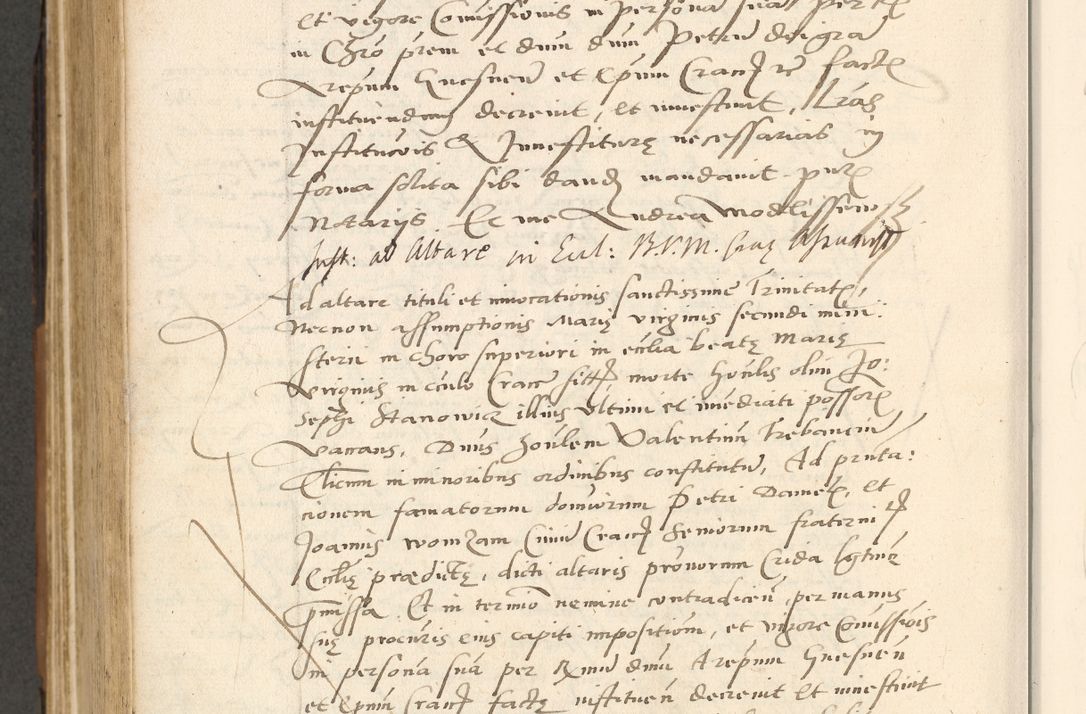 et vigore Comissionis in persona sua per R
in Chro prem et dnm dnm Petru dei gra
Arepum Gnesnen et Epum Crac re facte
instituendum decrevit, et investivit, Lras
Institucois & Investiturę necessarias in
forma solita sibi dand mandavit per
Notarijs. Et me Andrea Modlissewsk
Inst: ad Altare in Eccl: B.V.M. Crac
Ad altare tituli et invocationis sanctissime Trinitatis,
Necnon assumptionis Marię virginis secundi mini:
sterii in choro superiori in ecclia beatę Marię
virginis in circulo Crac sitt morte honlis olim Jo:
sephi Stanowicz illius ultimi et imediati possoris
vacans, Dnus honlem Valentinu Trebanem
Clicum in minoribus ordinibus constitutu, Ad pnta:
cionem famatorum dominorum Petri Danielis, et
Joannis Womzam Civiu Crac Seniorum fraterni
Ecclię prædictę, dicti altaris pronorum Crida lgtimę
pmissa Et in termio nemine contradicen, per manus
suę procuris eius capiti impositiom, et vigore Comissiois
in persona sua per Rxmu dnm Arepum Gnesnen
et Epum Crac factę institien decrevit Et investivit